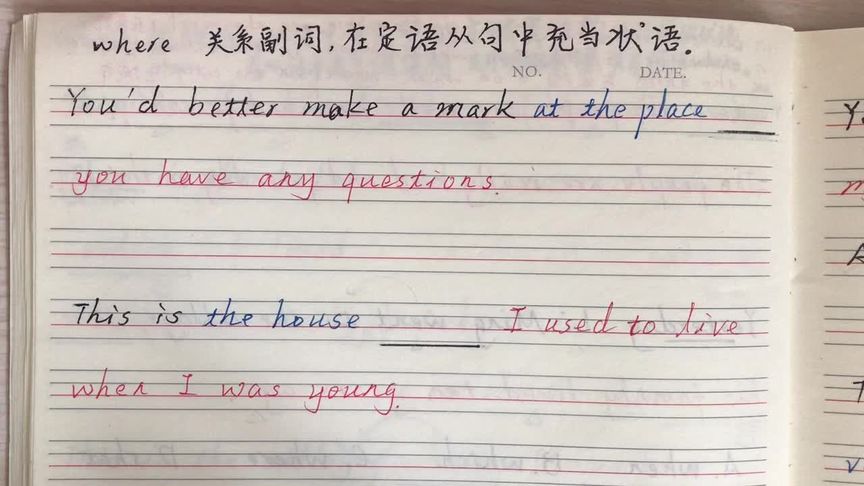 where 关系副词,在定语从句中充当状语.
NO. DATE.
You'd better make a mark at the place ____
you have any questions.
This is the house ____ I used to live
when I was young.